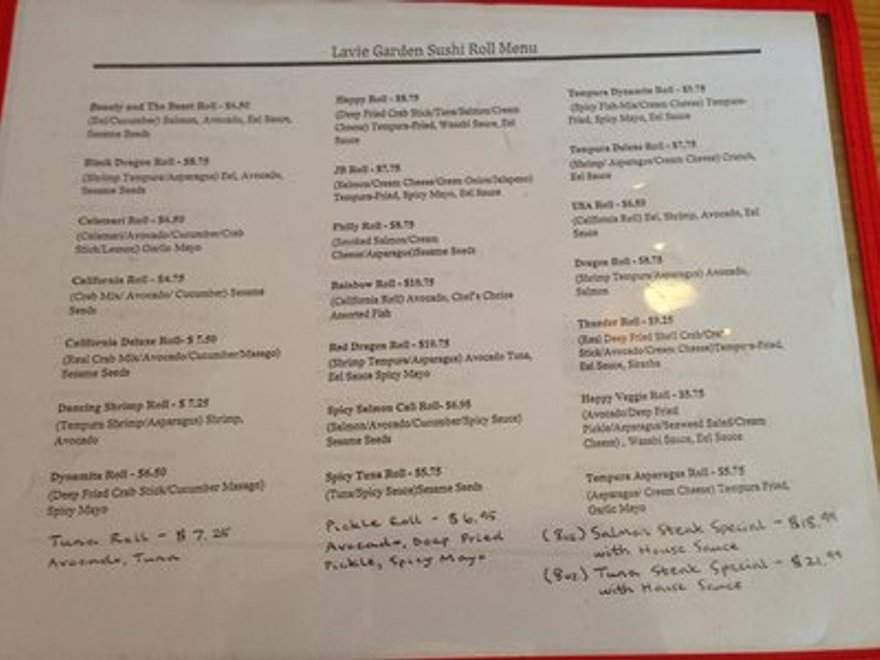 Lavie Garden Sushi Roll Menu
Beauty and The Beast Roll - $6.50
(Eel/Cucumber) Salmon, Avocado, Eel Sauce,
Sesame Seeds
Black Dragon Roll - $8.75
(Shrimp Tempura/Asparagus) Eel, Avocado,
Sesame Seeds
Calamari Roll - $6.50
(Calamari/Avocado/Cucumber/Crab
Stick/Lemon) Garlic Mayo
California Roll - $4.75
(Crab Mix/ Avocado/ Cucumber) Sesame
Seeds
California Deluxe Roll- $ 7.50
(Real Crab Mix/Avocado/Cucumber/Masago)
Sesame Seeds
Dancing Shrimp Roll - $ 7.25
(Tempura Shrimp/Asparagus) Shrimp,
Avocado
Dynamite Roll - $6.50
(Deep Fried Crab Stick/Cucumber Masago)
Spicy Mayo
Tuna Roll - $ 7.25
Avocado, Tuna
Happy Roll - $8.75
(Deep Fried Crab Stick/Tuna/Salmon/Cream
Cheese) Tempura-Fried, Wasabi Sauce, Eel
Sauce
JB Roll - $7.75
(Salmon/Cream Cheese/Green Onion/Jalapeno)
Tempura-Fried, Spicy Mayo, Eel Sauce
Philly Roll - $8.75
(Smoked Salmon/Cream
Cheese/Asparagus)Sesame Seeds
Rainbow Roll - $10.75
(California Roll) Avocado, Chef's Choice
Assorted Fish
Red Dragon Roll - $10.75
(Shrimp Tempura/Asparagus) Avocado Tuna,
Eel Sauce Spicy Mayo
Spicy Salmon Cali Roll- $6.95
(Salmon/Avocado/Cucumber/Spicy Sauce)
Sesame Seeds
Spicy Tuna Roll - $5.75
(Tuna/Spicy Sauce)Sesame Seeds
Pickle Roll - $6.95
Avocado, Deep Fried
Pickle, Spicy Mayo
Tempura Dynamite Roll - $9.75
(Spicy Fish-Mix/Cream Cheese) Tempura-
Fried, Spicy Mayo, Eel Sauce
Tempura Deluxe Roll - $7.75
(Shrimp/ Asparagus/Cream Cheese) Crunch,
Eel Sauce
USA Roll - $6.50
(California Roll) Eel, Shrimp, Avocado, Eel
Sauce
Dragon Roll - $8.75
(Shrimp Tempura/Asparagus) Avocado,
Salmon
Thunder Roll - $9.25
(Real Deep Fried Shell Crab/Crab
Stick/Avocado/Cream Cheese)Tempura-Fried,
Eel Sauce, Siracha
Happy Veggie Roll - $5.75
(Avocado/Deep Fried
Pickle/Asparagus/Seaweed Salad/Cream
Cheese) , Wasabi Sauce, Eel Sauce
Tempura Asparagus Roll - $5.75
(Asparagus/ Cream Cheese) Tempura Fried,
Garlic Mayo
(8oz) Salmon Steak Special - $18.99
with House Sauce
(8oz) Tuna Steak Special - $21.99
with House Sauce